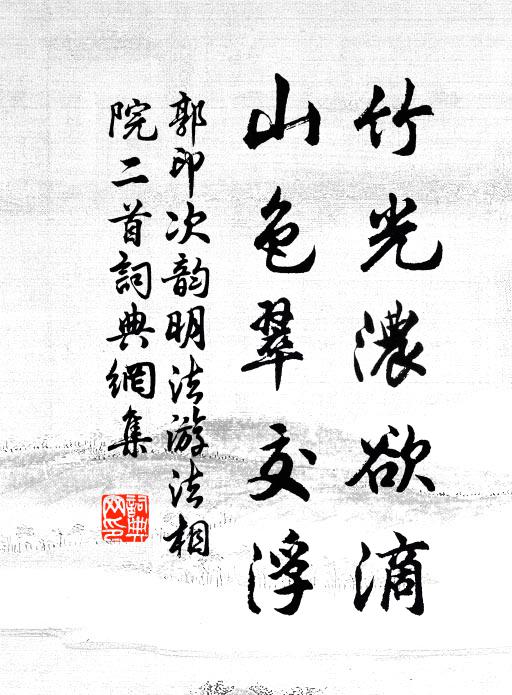 竹光濃欲滴
山色翠交浮
郭印次韵明法游法相
院二首詞典網集
詞典網印